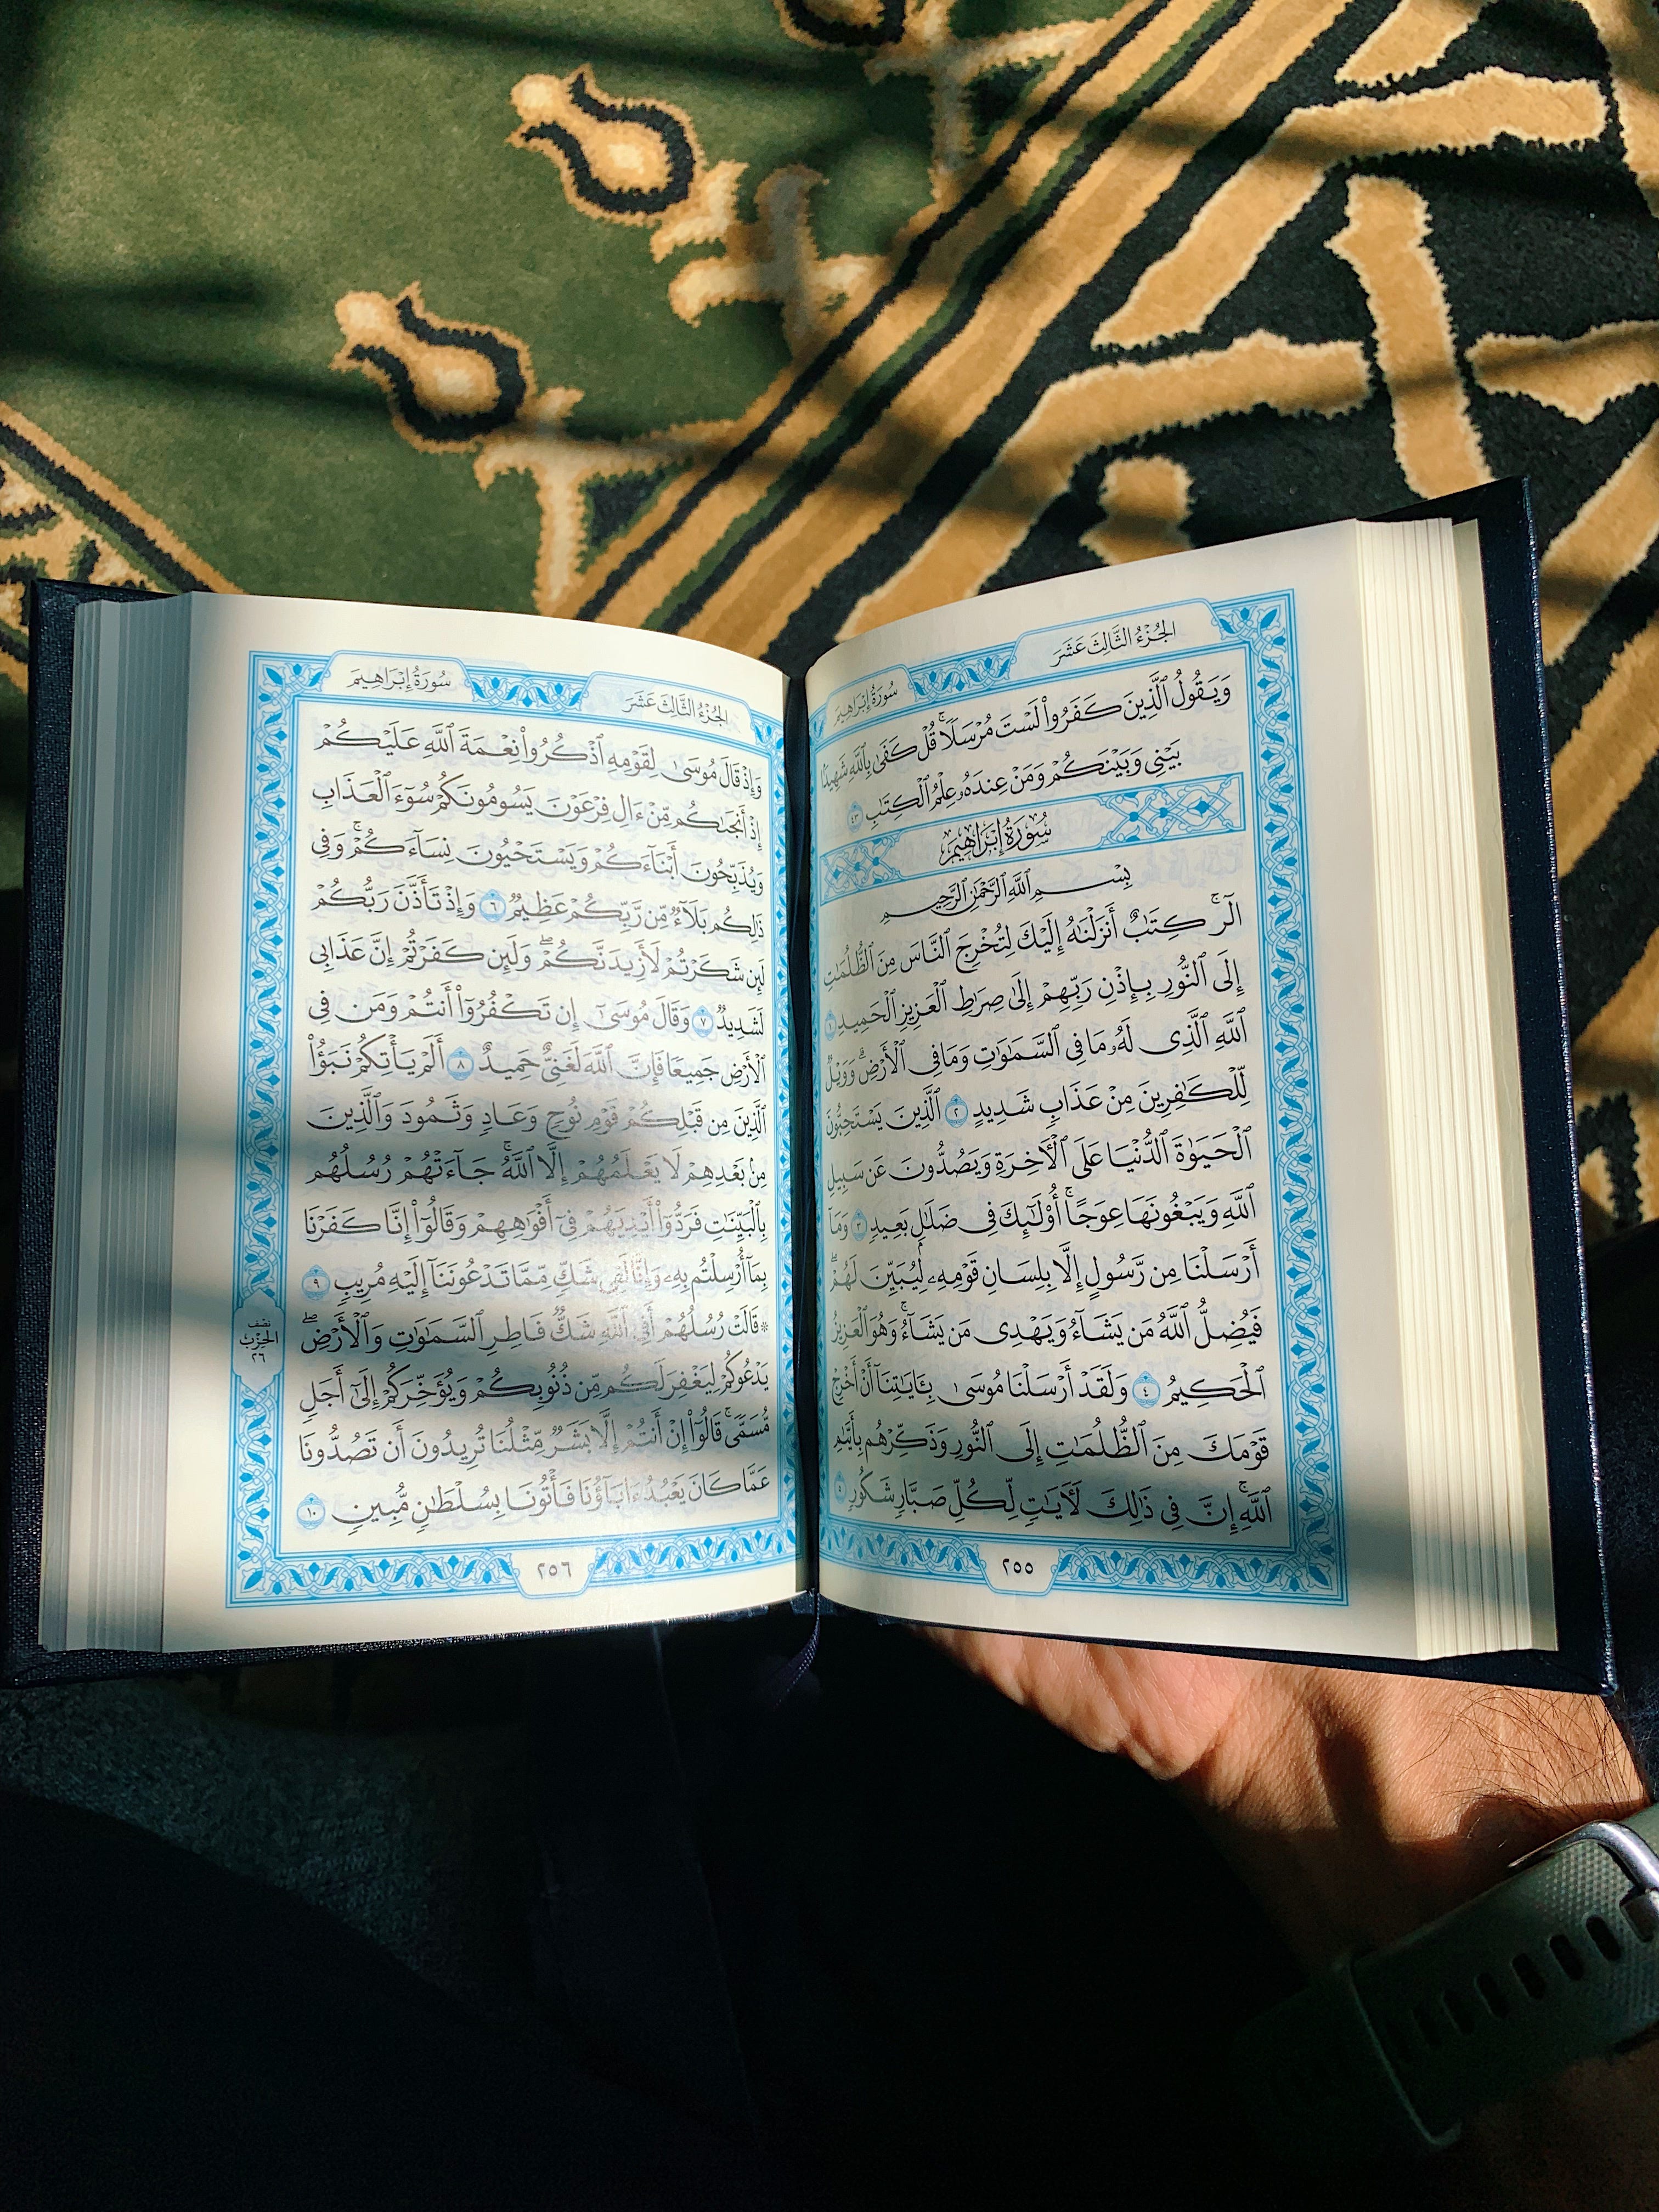 الجُزْءُ الثَّالِثَ عَشَرَ
سُورَةُ إِبْرَاهِيمَ
وَيَقُولُ ٱلَّذِينَ كَفَرُواْ لَسْتَ مُرْسَلٗاۚ قُلْ كَفَىٰ بِٱللَّهِ شَهِيدَۢا
بَيْنِي وَبَيْنَكُمْ وَمَنْ عِندَهُۥ عِلْمُ ٱلْكِتَٰبِ ٤٣
سُورَةُ إِبْرَاهِيمَ
بِسْمِ ٱللَّهِ ٱلرَّحْمَٰنِ ٱلرَّحِيمِ
الٓرۚ كِتَٰبٌ أَنزَلْنَٰهُ إِلَيْكَ لِتُخْرِجَ ٱلنَّاسَ مِنَ ٱلظُّلُمَٰتِ
إِلَى ٱلنُّورِ بِإِذْنِ رَبِّهِمْ إِلَىٰ صِرَٰطِ ٱلْعَزِيزِ ٱلْحَمِيدِ ١
ٱللَّهِ ٱلَّذِي لَهُۥ مَا فِي ٱلسَّمَٰوَٰتِ وَمَا فِي ٱلْأَرْضِۗ وَوَيْلٌ
لِّلْكَٰفِرِينَ مِنْ عَذَابٖ شَدِيدٍ ٢ ٱلَّذِينَ يَسْتَحِبُّونَ
ٱلْحَيَوٰةَ ٱلدُّنْيَا عَلَى ٱلْأٓخِرَةِ وَيَصُدُّونَ عَن سَبِيلِ
ٱللَّهِ وَيَبْغُونَهَا عِوَجًاۚ أُوْلَٰٓئِكَ فِي ضَلَٰلِۭ بَعِيدٖ ٣ وَمَآ
أَرْسَلْنَا مِن رَّسُولٍ إِلَّا بِلِسَانِ قَوْمِهِۦ لِيُبَيِّنَ لَهُمْۖ
فَيُضِلُّ ٱللَّهُ مَن يَشَآءُ وَيَهْدِي مَن يَشَآءُۚ وَهُوَ ٱلْعَزِيزُ
ٱلْحَكِيمُ ٤ وَلَقَدْ أَرْسَلْنَا مُوسَىٰ بِـَٔايَٰتِنَآ أَنْ أَخْرِجْ
قَوْمَكَ مِنَ ٱلظُّلُمَٰتِ إِلَى ٱلنُّورِ وَذَكِّرْهُم بِأَيَّىٰمِ
ٱللَّهِۚ إِنَّ فِي ذَٰلِكَ لَأٓيَٰتٖ لِّكُلِّ صَبَّارٖ شَكُورٖ ٥
٢٥٥
الجُزْءُ الثَّالِثَ عَشَرَ
سُورَةُ إِبْرَاهِيمَ
وَإِذْ قَالَ مُوسَىٰ لِقَوْمِهِ ٱذْكُرُواْ نِعْمَةَ ٱللَّهِ عَلَيْكُمْ
إِذْ أَنجَىٰكُم مِّنْ ءَالِ فِرْعَوْنَ يَسُومُونَكُمْ سُوٓءَ ٱلْعَذَابِ
وَيُذَبِّحُونَ أَبْنَآءَكُمْ وَيَسْتَحْيُونَ نِسَآءَكُمْۚ وَفِي
ذَٰلِكُم بَلَآءٌ مِّن رَّبِّكُمْ عَظِيمٌ ٦ وَإِذْ تَأَذَّنَ رَبُّكُمْ
لَئِن شَكَرْتُمْ لَأَزِيدَنَّكُمْۖ وَلَئِن كَفَرْتُمْ إِنَّ عَذَابِي
لَشَدِيدٌ ٧ وَقَالَ مُوسَىٰٓ إِن تَكْفُرُوٓاْ أَنتُمْ وَمَن فِي
ٱلْأَرْضِ جَمِيعٗا فَإِنَّ ٱللَّهَ لَغَنِيٌّ حَمِيدٌ ٨ أَلَمْ يَأْتِكُمْ نَبَؤُاْ
ٱلَّذِينَ مِن قَبْلِكُمْ قَوْمِ نُوحٖ وَعَادٖ وَثَمُودَ وَٱلَّذِينَ
مِنۢ بَعْدِهِمْ لَا يَعْلَمُهُمْ إِلَّا ٱللَّهُۚ جَآءَتْهُمْ رُسُلُهُم
بِٱلْبَيِّنَٰتِ فَرَدُّوٓاْ أَيْدِيَهُمْ فِيٓ أَفْوَٰهِهِمْ وَقَالُوٓاْ إِنَّا كَفَرْنَا
بِمَآ أُرْسِلْتُم بِهِۦ وَإِنَّا لَفِي شَكّٖ مِّمَّا تَدْعُونَنَآ إِلَيْهِ مُرِيبٖ ٩
۞ قَالَتْ رُسُلُهُمْ أَفِي ٱللَّهِ شَكّٞ فَاطِرِ ٱلسَّمَٰوَٰتِ وَٱلْأَرْضِۖ
يَدْعُوكُمْ لِيَغْفِرَ لَكُم مِّن ذُنُوبِكُمْ وَيُؤَخِّرَكُمْ إِلَىٰٓ أَجَلٖ
مُّسَمّٗىۚ قَالُوٓاْ إِنْ أَنتُمْ إِلَّا بَشَرٌ مِّثْلُنَا تُرِيدُونَ أَن تَصُدُّونَا
عَمَّا كَانَ يَعْبُدُ ءَابَآؤُنَا فَأْتُونَا بِسُلْطَٰنٖ مُّبِينٖ ١٠
نصف
الحزب
٢٦
٢٥٦